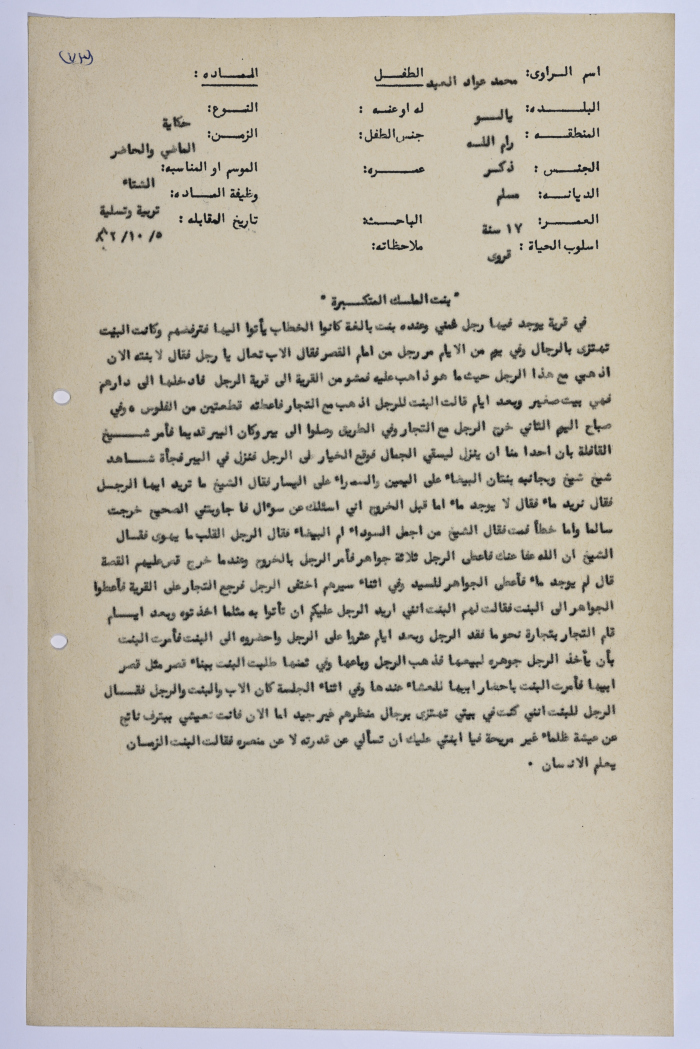 (٧٣)
اسم الراوى: محمد عواد العبد الطفل المادة:
البلده: يالو له او عنه: النوع: حكاية
المنطقه: رام الله جنس الطفل: الزمن: الماضي والحاضر
الجنس: ذكر عمره: الموسم او المناسبه: الشتاء
الديانه: مسلم وظيفة الماده: تربية وتسلية
العمر: ١٧ سنة الباحثة تاريخ المقابله: ٥/ ١٠/
اسلوب الحياة: قروى ملاحظاته:
" بنت الملك المتكبرة "
في قرية يوجد فيها رجل غني وعنده بنت بالغة كانوا الخطاب يأتوا اليها فترفضهم وكانت البنت
تهتزى بالرجال وفي يوم من الايام مر رجل من امام القصر فقال الاب تعال يا رجل فقال لابنته الان
اذهبي مع هذا الرجل حيث ما هو ذاهب عليه فمشو من القرية الى قرية الرجل فادخلها الى دارهم
فهي بيت صغير وبعد ايام قالت البنت للرجل اذهب مع التجار فاعطته قطعتين من الفلوس ، وفي
صباح اليوم الثاني خرج الرجل مع التجار وفي الطريق وصلوا الى بير وكان البير قديما فأمر شيخ
القافلة بان احدا منا ان ينزل ليسقي الجمال فوقع الخيار على الرجل فنزل في البير فجأة شاهد
شيخ شيخ وبجانبه بنتان البيضاء على اليمين والسمراء على اليسار فقال الشيخ ما تريد ايها الرجل
فقال نريد ماء فقال لا يوجد ماء اما قبل الخروج اني اسئلك عن سؤال فا جاوبتني الصحيح خرجت
سالما واما خطأ فمت فقال الشيخ من اجمل السوداء ام البيضاء فقال الرجل القلب ما يهوى فقال
الشيخ ان الله عفا عنك فاعطى الرجل ثلاثة جواهر فأمر الرجل بالخروج وعندما خرج قص عليهم القصة
قال لم يوجد ماء فأعطى الجواهر للسيد وفي اثناء سيرهم اختفى الرجل فرجع التجار على القرية فأعطوا
الجواهر الى البنت فقالت لهم البنت انني اريد الرجل عليكم ان تأتوا به مثلما اخذتوه وبعد ايام
قام التجار بتجارة نحو ما فقد الرجل وبعد ايام عثروا على الرجل واحضروه الى البنت فأمرت البنت
بأن يأخذ الرجل جوهره لبيعها فذهب الرجل وباعها وفي ثمنها طلبت البنت ببناء قصر مثل قصر
ابيها فأمرت البنت باحضار ابيها للعشاء عندها وفي اثناء الجلسة كان الاب والبنت والرجل فقال
الرجل للبنت انني كنت في بيتي تهتزى برجال منظرهم غير جيد اما الان فانت تعيشي بيترف ناتج
عن عيشة ظلماء غير مريحة فيا ابنتي عليك ان تسألي عن قدرته لا عن منصره فقالت البنت الزمان
يعلم الانسان .